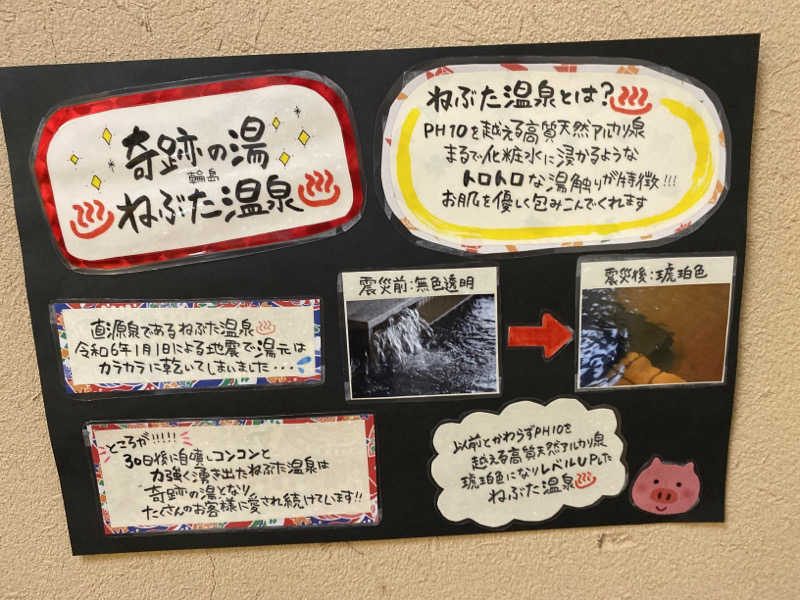 奇跡の湯
輪島
ねぶた温泉
ねぶた温泉とは?
PH10を越える高質天然アルカリ泉
まるで化粧水に浸かるような
トロトロな湯触りが特徴!!!
お肌を優しく包みこんでくれます
震災前:無色透明
震災後:琥珀色
直源泉であるねぶた温泉
令和6年1月1日による地震で湯元は
カラカラに乾いてしまいました・・・
ところが!!!!!
30日後に自噴しコンコンと
力強く湧き出たねぶた温泉は
奇跡の湯となり
たくさんのお客様に愛され続けています!!
以前とかわらずPH10を
越える高質天然アルカリ泉
琥珀色になりレベルUPした
ねぶた温泉